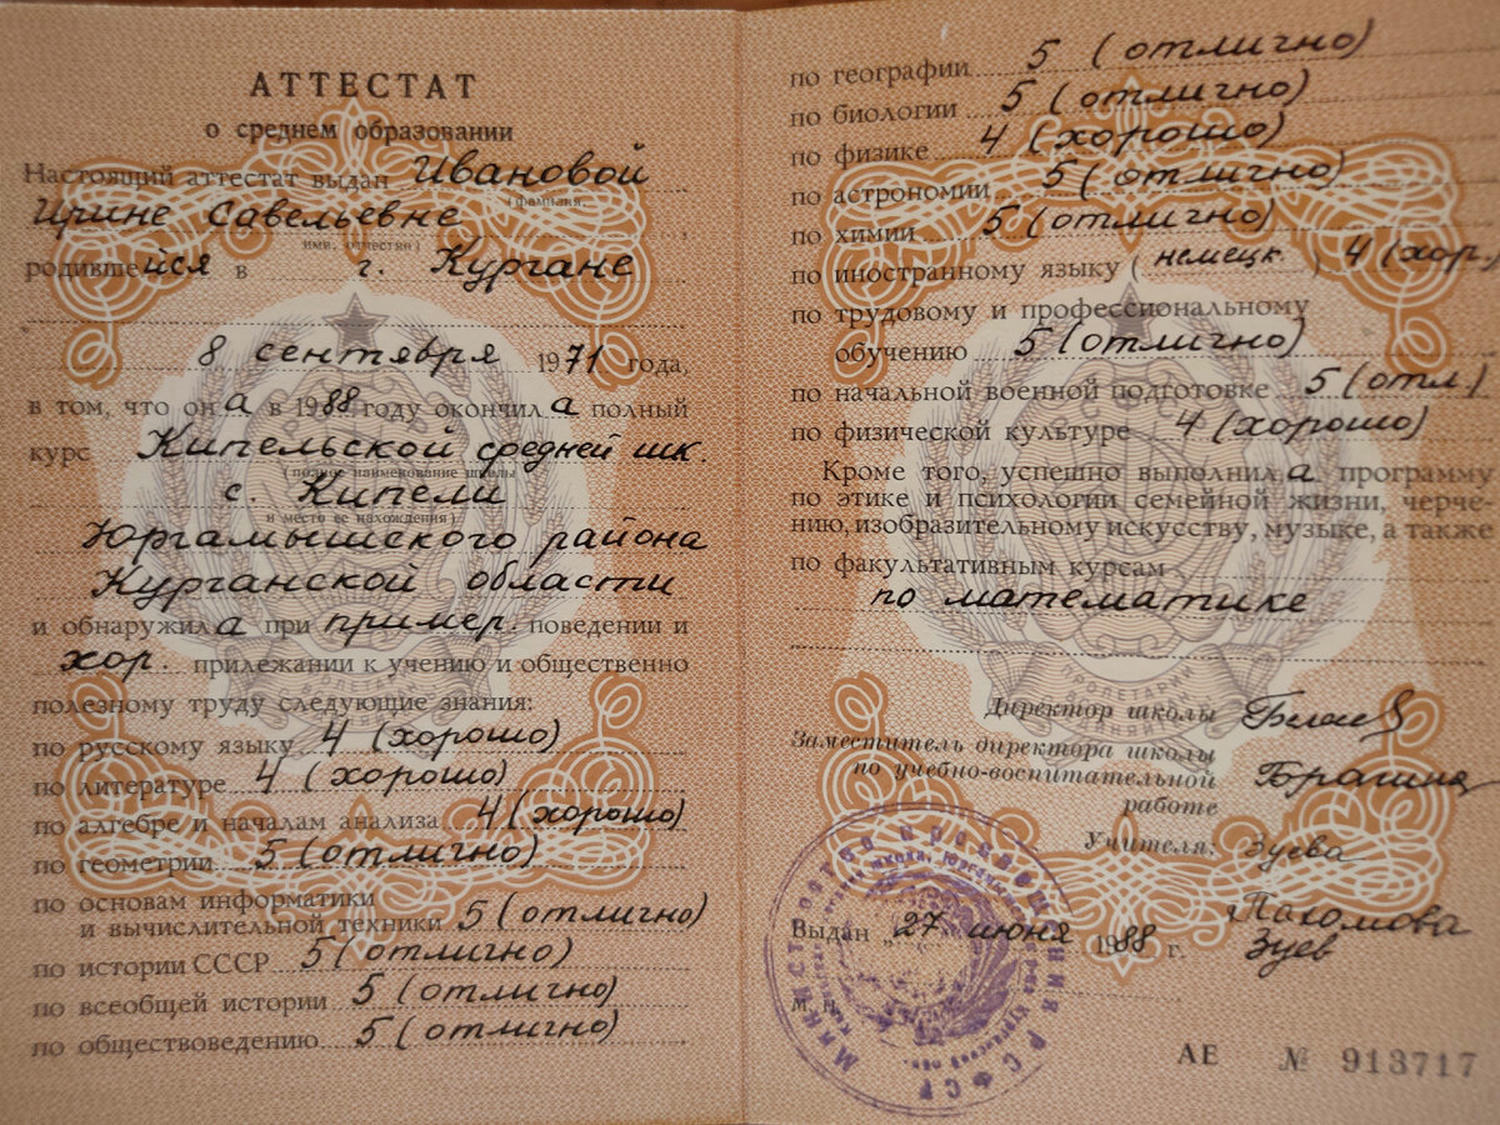 АТТЕСТАТ
о среднем образовании
Настоящий аттестат выдан Ивановой
(фамилия,
Ирине Савельевне
имя, отчество)
родившейся в г. Кургане
8 сентября 1971 года,
в том, что она в 1988 году окончила полный
курс Кипельской средней шк.
(полное наименование школы
с. Кипели
и место ее нахождения)
Юргамышского района
Курганской области
и обнаружила при пример. поведении и
хор. прилежании к учению и общественно
полезному труду следующие знания:
по русскому языку 4 (хорошо)
по литературе 4 (хорошо)
по алгебре и началам анализа 4 (хорошо)
по геометрии 5 (отлично)
по основам информатики
и вычислительной техники 5 (отлично)
по истории СССР 5 (отлично)
по всеобщей истории 5 (отлично)
по обществоведению 5 (отлично)
по географии 5 (отлично)
по биологии 5 (отлично)
по физике 4 (хорошо)
по астрономии 5 (отлично)
по химии 5 (отлично)
по иностранному языку (немецк.) 4 (хор.)
по трудовому и профессиональному
обучению 5 (отлично)
по начальной военной подготовке 5 (отл.)
по физической культуре 4 (хорошо)
Кроме того, успешно выполнила программу
по этике и психологии семейной жизни, черче-
нию, изобразительному искусству, музыке, а также
по факультативным курсам
по математике
Директор школы
Заместитель директора школы
по учебно-воспитательной Брагина
работе
Учителя: Зуева
Пахомова
Выдан „27 июня 1988 г. Зуев
М. П.
МИНИСТЕРСТВО ПРОСВЕЩЕНИЯ РСФСР
АЕ № 913717